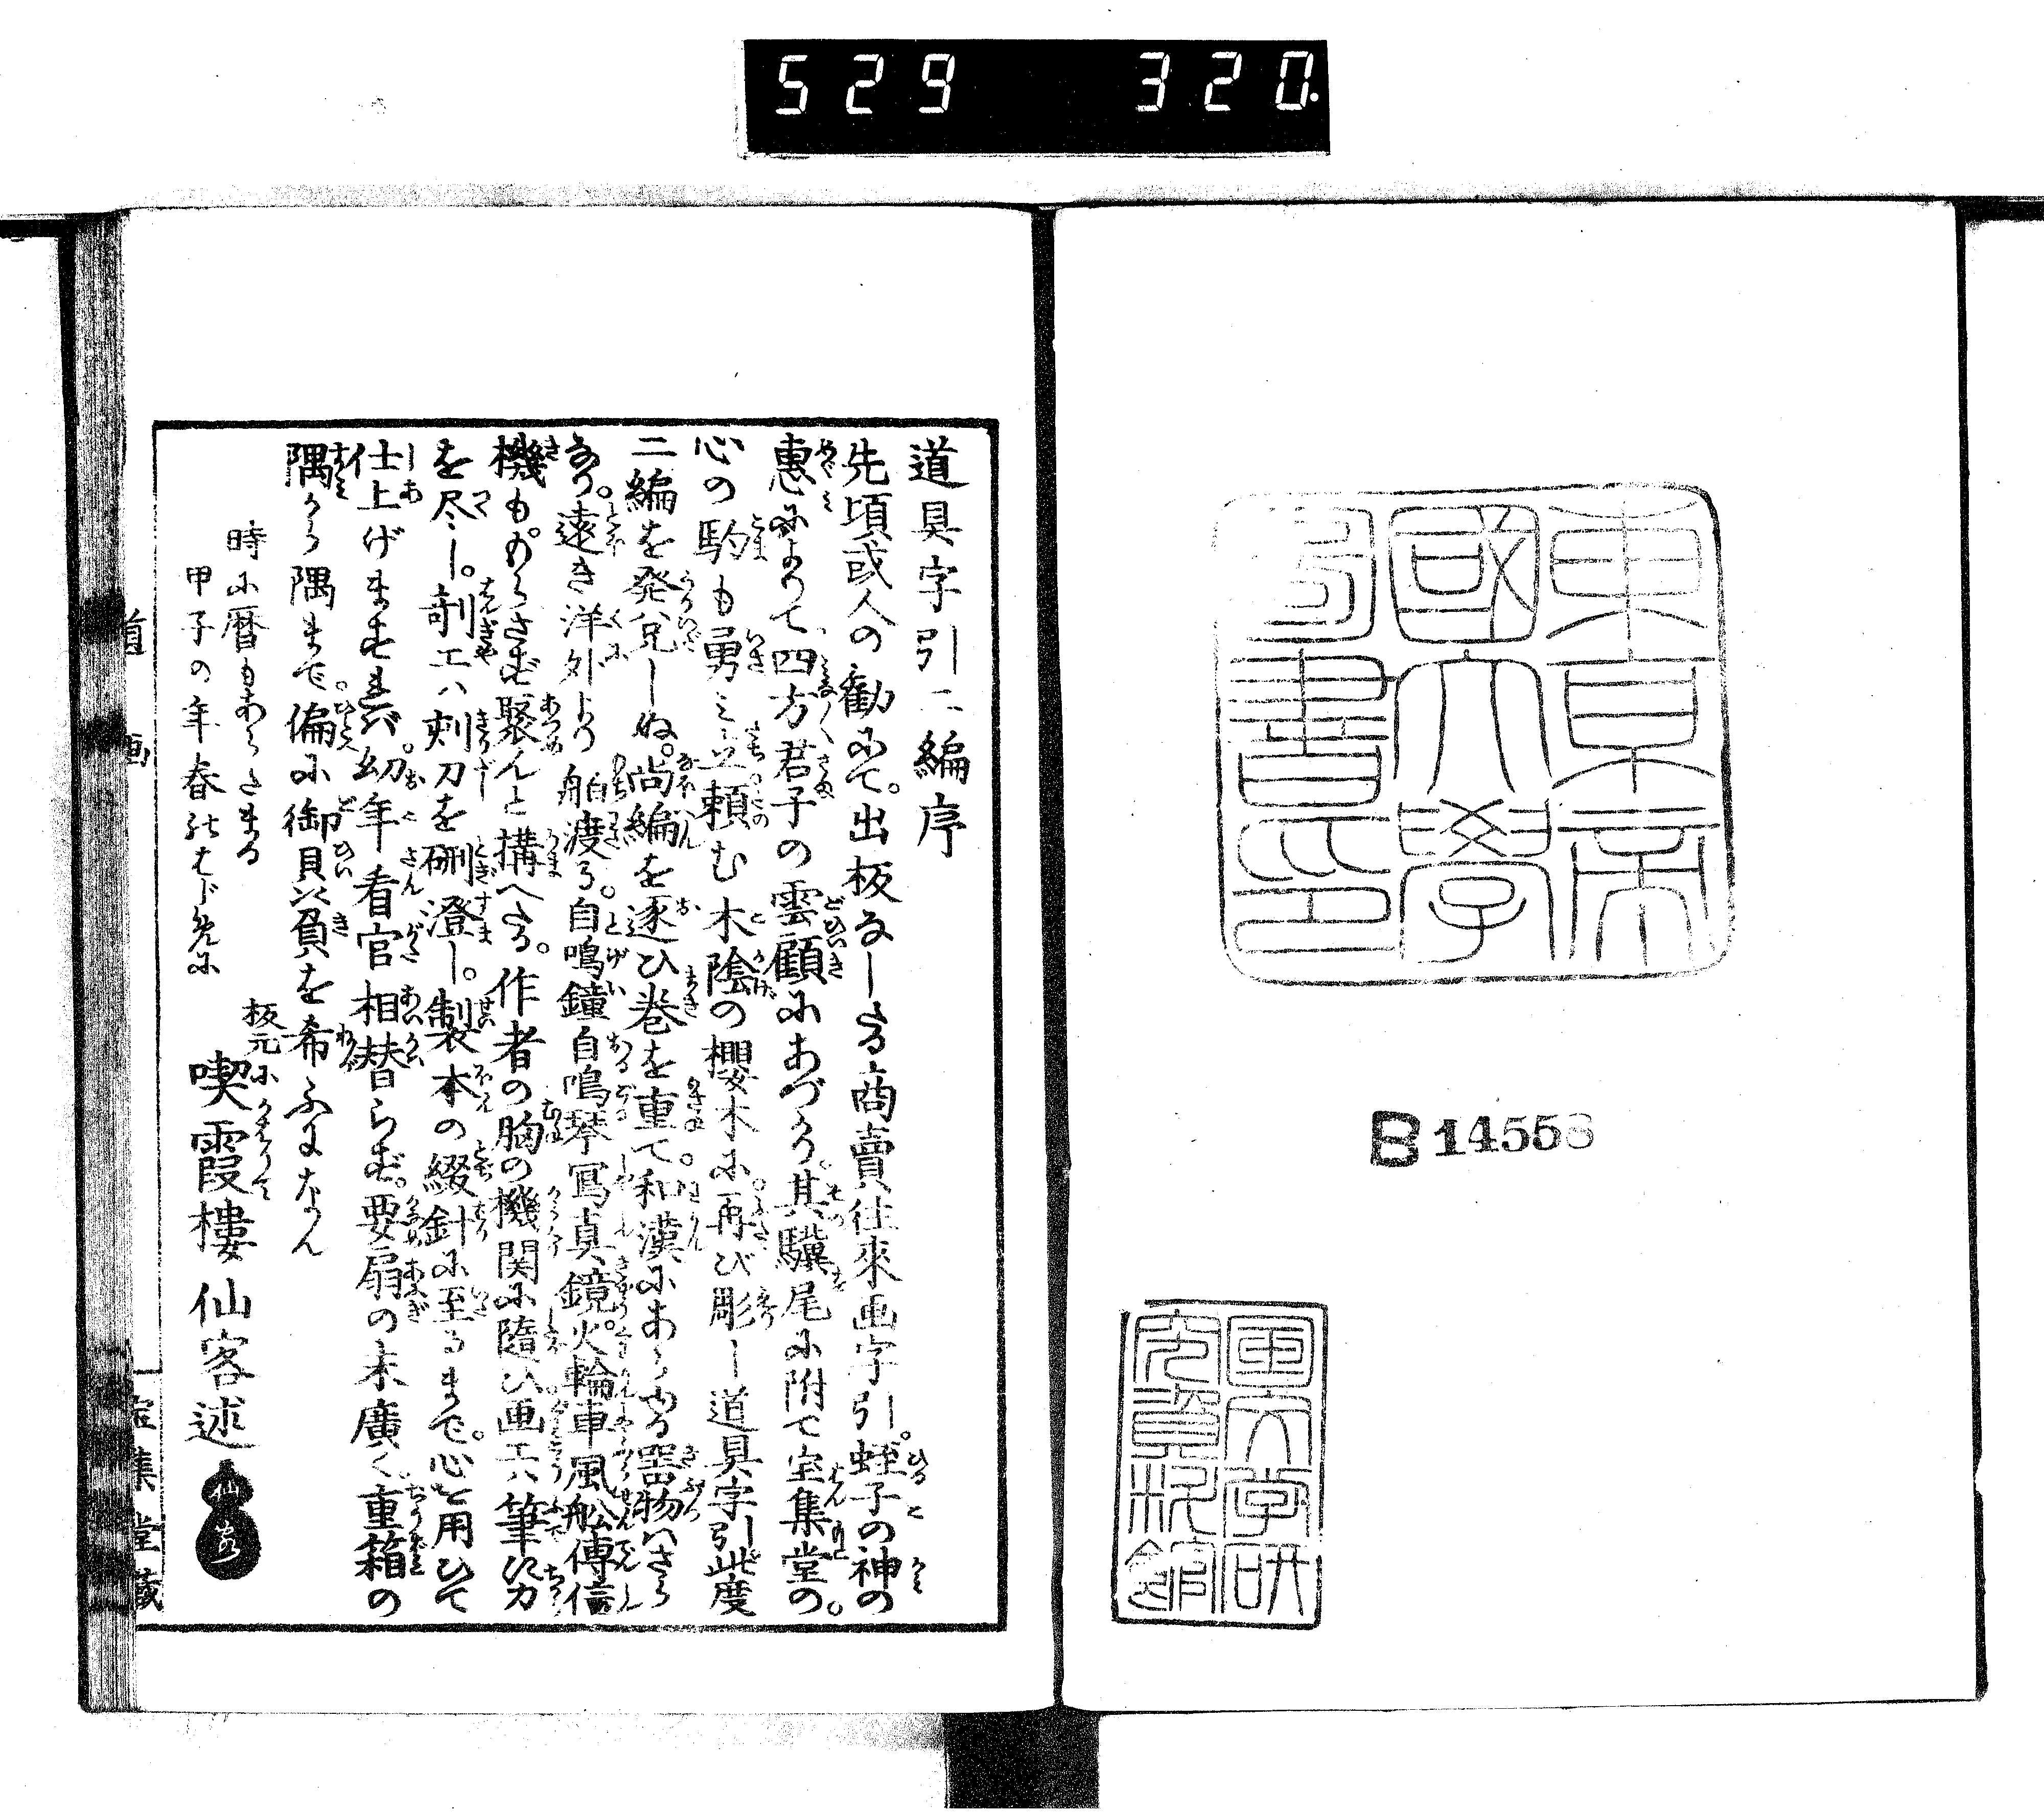 529 320.
東京帝
國大學
圖書印
B14558
国文学研
究資料館
道具字引二編序
先頃或人の勧にて。出板なしたる商賣往來画字引。蛭子の神の
惠によりて四方君子の雲顧にあづかり。其驥尾に附て宝集堂の。
心の駒も勇み立頼む木陰の櫻木に再び彫し道具字引此度
二編を発兌しぬ。尚編を逐ひ巻を重て和漢にあらゆる器物ハさら
なり。遠き洋外より舶渡る。自鳴鐘自鳴琴寫真鏡火輪車風舩傳信
機も。もらさず聚んと搆へたる。作者の胸の機関に隨ひ画工ハ筆に力
を尽し。剞工ハ刺刀を硎澄し。製本の綴針に至るまで。心を用ひて
仕上げますれバ。幼年看官相替らず。要扇の末廣く重箱の
隅から隅まで。偏に御贔屓を希ふになん
時に暦もあらたまる
甲子の年春
板元に
喫霞樓仙客述
仙
宝集堂藏